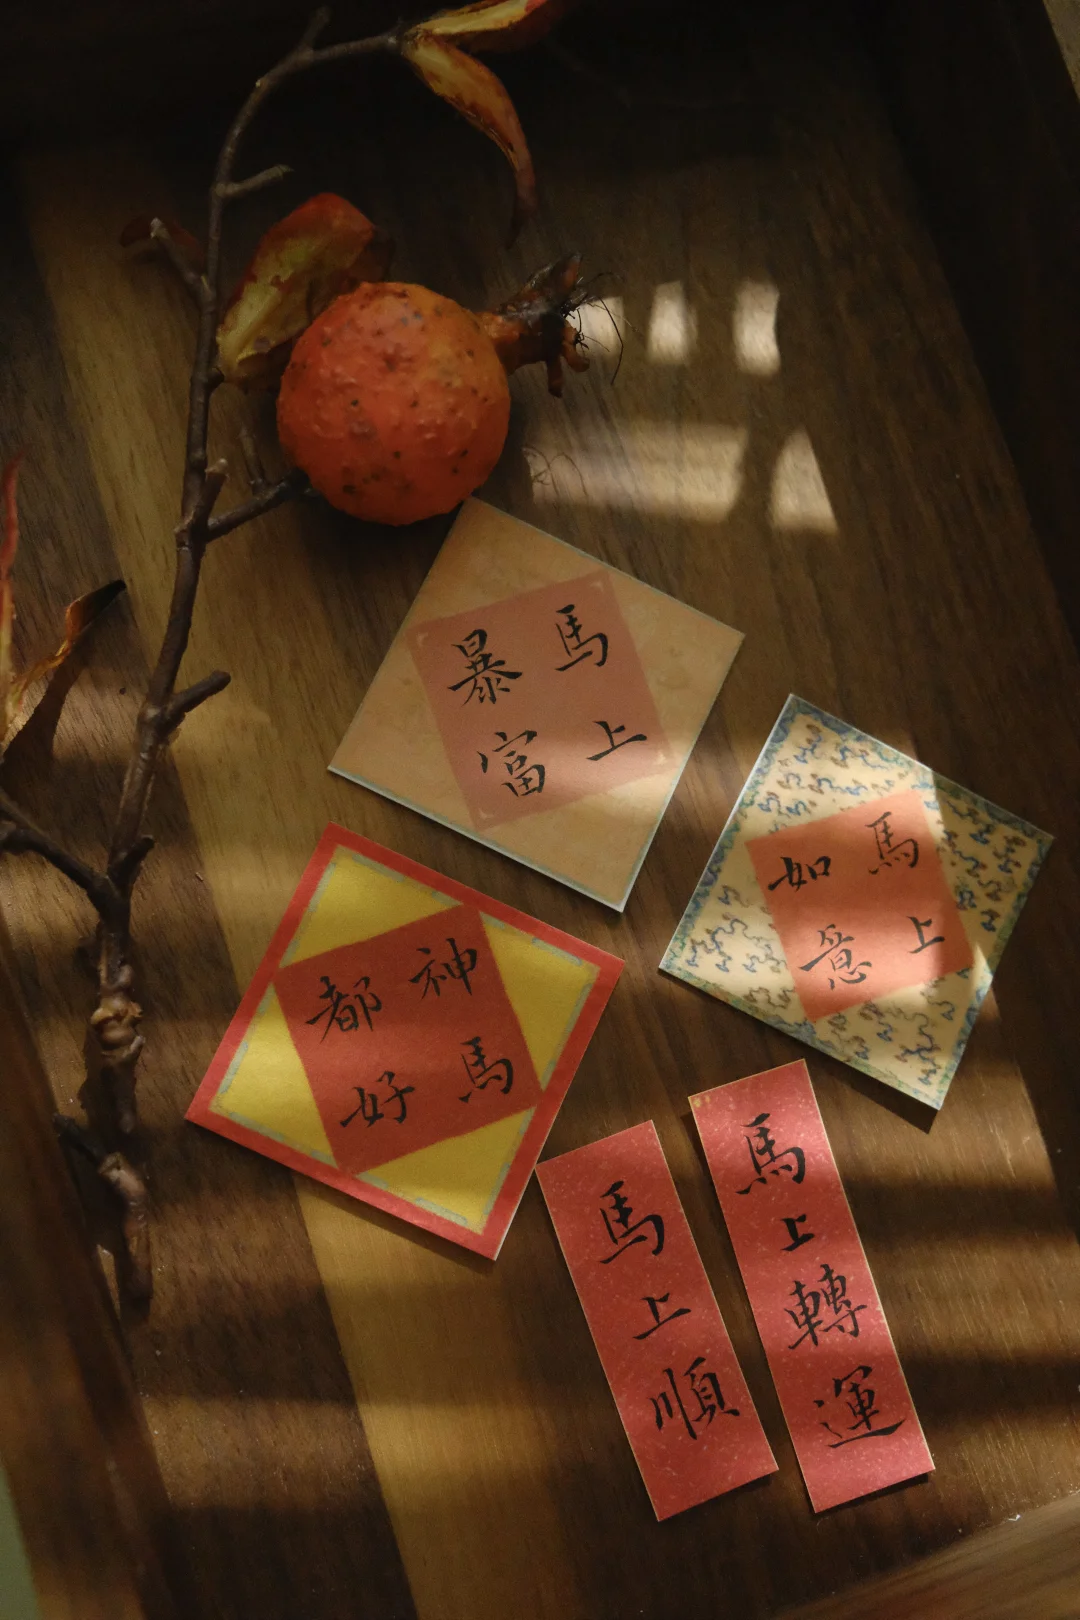 馬上
暴富
馬上
如意
神馬
都好
馬上順
馬上轉運